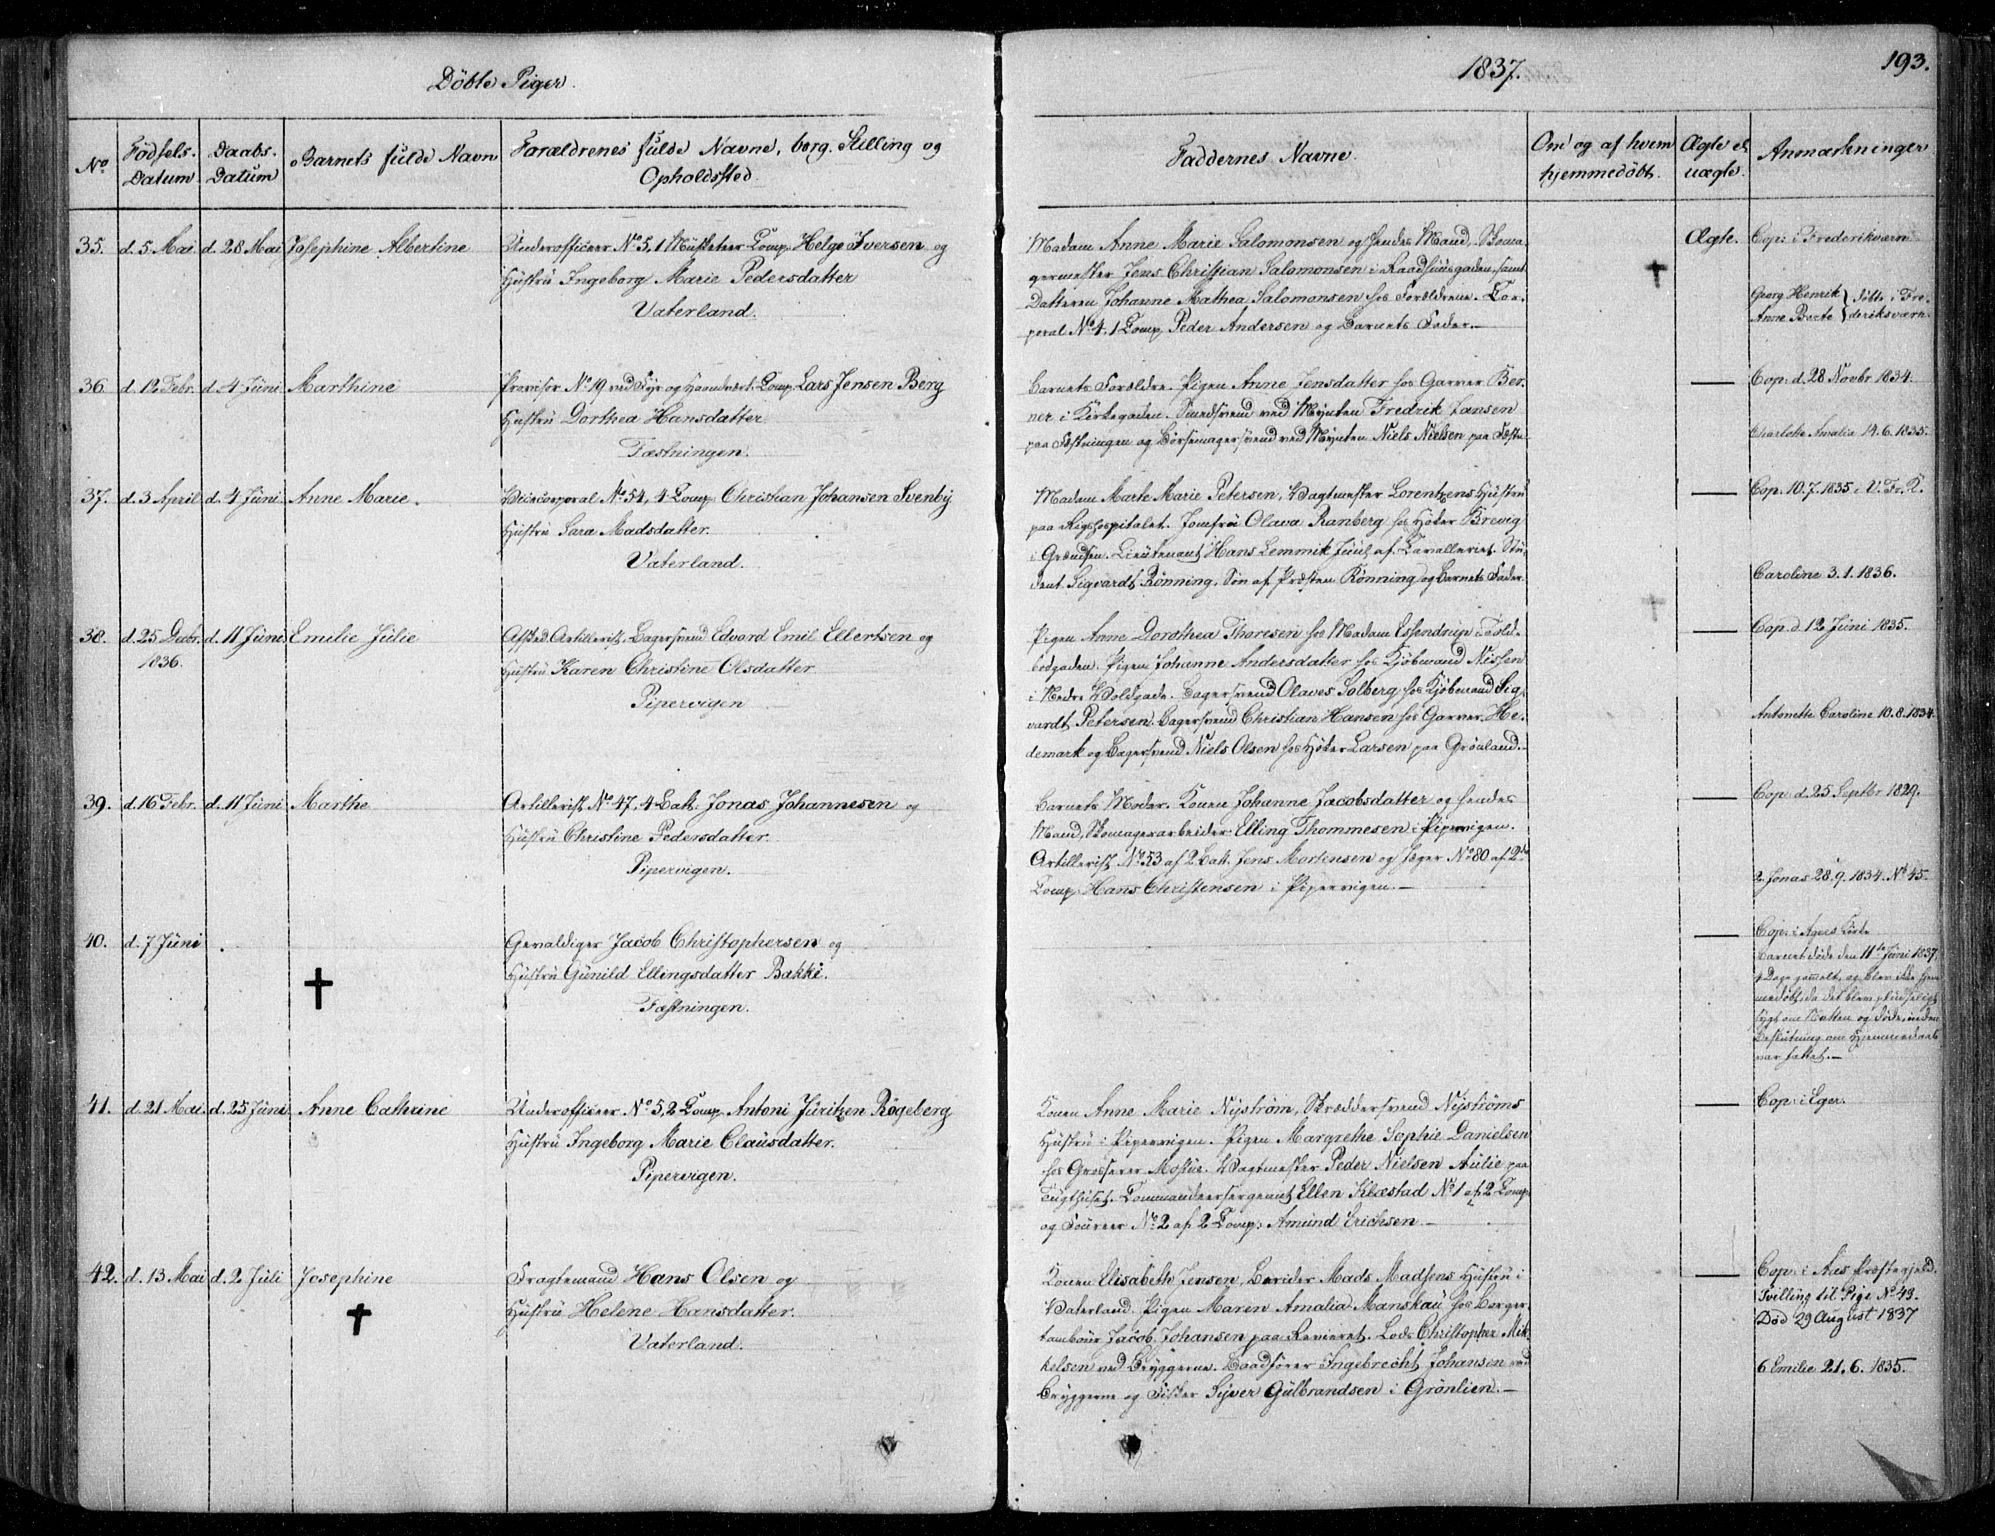 Döbte Piger.
1837.
193.
No
Födsels-Datum
Daabs-Datum
Barnets fulde Navn
Forældrenes fulde Navne, borg. Stilling og Opholdssted.
Faddernes Navne.
Om og af hvem hjemmedöbt.
Ægte el. uægte.
Anmærkninger
35. d. 5 Mai d. 28 Mai Josephine Albertine
Underofficeer No 5, 1 Musketeer Comp. Helge Iversen og
Hustru Ingeborg Marie Pedersdatter
Vaterland.
Madam Anne Marie Salomonsen og hendes Mand, Skoma-
germester Jens Christian Salomonsen i Raadhuusgaden, samt
Datteren Johanne Mathea Salomonsen hos Forældrene. Cor-
poral No 4, 1 Comp. Peder Andersen og Barnets Fader.
Ægte.
Cop: i Frederiksværn
Georg Henrik
Anne Berte
födte i Fre-
deriksværn.
36. d. 12 Febr. d. 4 Juni Marthine
Provisor No 19 ved Fyr og Haandværk. Comp. Lars Jensen Berg
Hustru Dorthea Hansdatter
Fæstningen.
Barnets Forældre. Pigen Anne Jensdatter hos Garver Ber-
ner i Kirkegaden. Smedsvend ved Mynten Fredrik Jansen
paa Fæstningen og Börsemagersvend ved Mynten Niels Nielsen paa Fæstn
Cop: d. 28 Novbr 1834.
Charlotte Amalia 14.6.1835.
37. d. 3 April d. 4 Juni Anne Marie.
Vicecorporal No 54, 4 Comp. Christian Johansen Svenby
Hustru Sara Madsdatter.
Vaterland.
Madam Marte Marie Petersen, Vagtmester Lorentzens Hustru
paa Rigshospitalet. Jomfru Olava Ramberg hos Höker Brevig
i Grændsen. Lieutenant Hans Lemmik Juul af Cavalleriet. Stu-
dent Sigvardt Rönning, Sön af Præsten Rönning og Barnets Fader.
Cop. 10.7.1835 i V. Fr. K.
Caroline 3.1.1836.
38. d. 25 Decbr. d. 11 Juni Emilie Julie
1836.
Afsked. Artillerist, Bagersvend Edvard Emil Ellertsen og
Hustru Karen Christine Olsdatter
Pipervigen
Pigen Anne Dorothea Thoresen hos Madam Essendrup i Told-
bodgaden. Pigen Johanne Andersdatter hos Kjöbmand Nissen
i Nedre Voldgade. Bagersvend Olaves Solberg hos Kjöbmand Sig-
vardt Petersen. Bagersvend Christian Hansen hos Garver He-
demark og Bagersvend Niels Olsen hos Höker Larsen paa Grönland.
Cop. d. 12 Juni 1835.
Antonette Caroline 10.8.1834.
39. d. 16 Febr. d. 11 Juni Marthe
Artillerist No 47, 4 Batt. Jonas Johannesen og
Hustru Christine Pedersdatter.
Pipervigen.
Barnets Moder. Konen Johanne Jacobsdatter og hendes
Mand, Skomagerarbeider Elling Thommesen i Pipervigen.
Artillerist No 53 af 2 Batt. Jens Mortensen og Jæger No 80 af 2de
Comp. Hans Christensen i Pipervigen.
Cop: d. 25 Septbr 1829.
2 Jonas 28.9.1834. No 45.
40. d. 7 Juni
Gevaldiger Jacob Christophersen og
Hustru Gunild Ellingsdatter Bakke.
Fæstningen.
Cop: i Agers Kirke
Barnet döde den 11te Juni 1837,
4 Dage gammelt, og blev ikke hjem-
medöbt, da det blev pludseligt
sygt om Natten og döde, inden
Beslutning om Hjemmedaab
var fattet.
41. d. 21 Mai d. 25 Juni Anne Cathrine
Underofficeer No 5, 2 Comp. Antoni Juritzen Rögeberg
Hustru Ingeborg Marie Clausdatter.
Pipervigen.
Konen Anne Marie Nyström, Skræddersvend Nyströms
Hustru i Pipervigen. Pigen Margrethe Sophie Danielsen
hos Grosserer Moestue. Vagtmester Peder Nielsen Aulie paa
Tugthuset. Commandeersergeant Ellen Klæstad No 1 af 2 Comp.
og Foureer No 2 af 2 Comp: Amund Erichsen
Cop: i Eger.
42. d. 13 Mai d. 2 Juli Josephine
Fragtemand Hans Olsen og
Hustru Helene Hansdatter.
Vaterland.
Konen Elisabeth Jensen, Berider Mads Madsens Hustru i
Vaterland. Pigen Maren Amalia Manskau hos Borger-
tambour Jacob Johansen paa Revieret. Lods Christopher Mik-
kelsen ved Bryggerne. Baadförer Ingebrecht Johansen ved
Bryggerne og Fisker Syver Gulbrandsen i Grönlien.
Cop: i Aas Præstegjeld.
Tvilling til Pige No 43.
Död 29 August 1837
6 Emilie 21.6.1835.